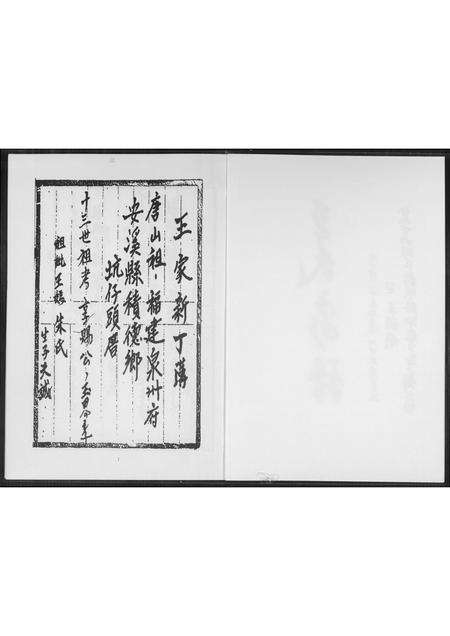 王家新丁簿
唐山祖·福建泉州府
安溪縣積德鄉
坑仔頭厝
十三世祖考 享賜公
祖妣王媽 朱氏
生子天誠